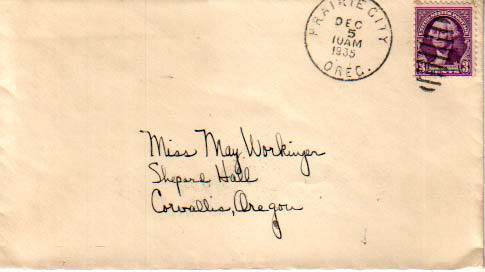 PRAIRIE CITY
DEC
5
10AM
1935
OREG.
3
Miss May Workinger
Shepard Hall
Corvallis, Oregon